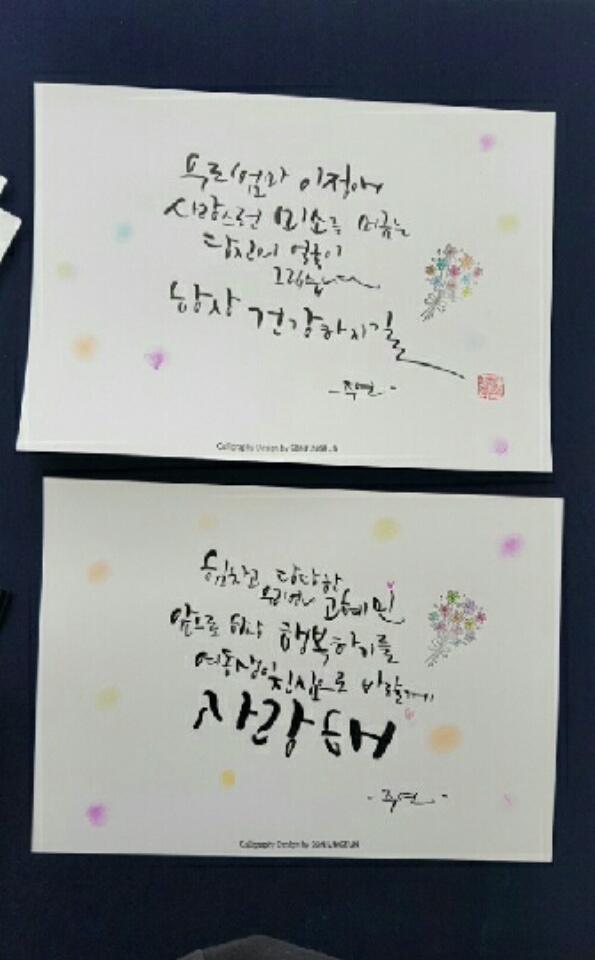 우리 엄마 이정애
사랑스런 미소를 머금는
당신의 얼굴이
그립습니다
항상 건강하시길
- 주연 -
Calligraphy Design by
힘차고 당당한
우리 언니 고혜민
앞으로 항상 행복하기를
여동생이 진심으로 바랄게
사랑해
- 주연 -
Calligraphy Design by